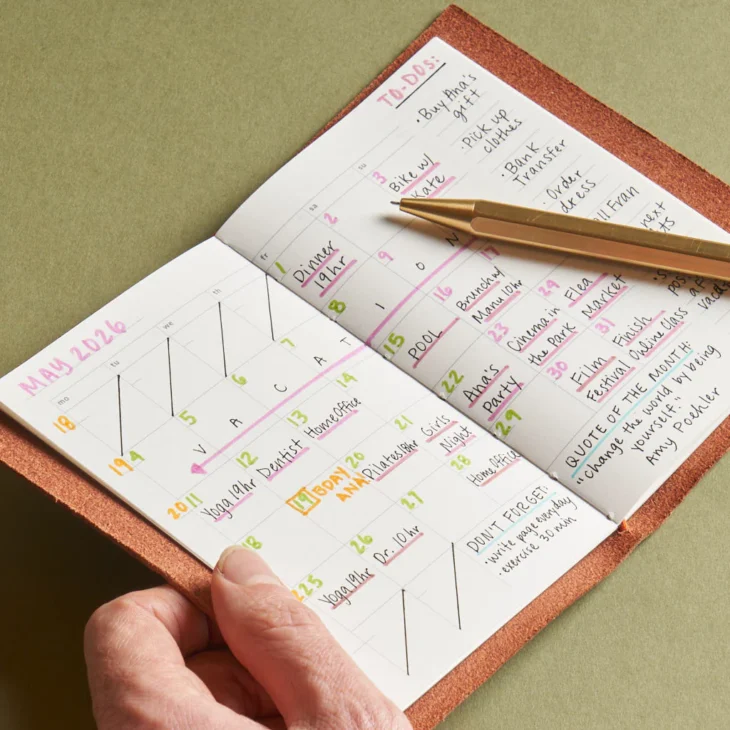 MAY 2026
mo
tu
we
th
18
19 4
5
6
7
VACATION
20 11
12
13
14
Yoga 19hr
Dentist
HomeOffice
18
19
BDAY
ANA
20
21
Pilates 18hr
Girls
Night
25
26
27
28
Yoga 19hr
Dr. 10hr
HomeOffice
DON'T FORGET:
· write page everyday
· exercise 30 min
fr
sa
su
1
2
3
Dinner
19hr
Bike w/
Kate
8
9
15
16
17
POOL
Brunch w/
Manu 10hr
22
23
Ana's
Party
Cinema in
the Park
Flea
Market
29
30
31
Film
Festival
Finish
Online Class
TO-DOS:
· Buy Ana's
gift
· Pick up
clothes
· Bank
Transfer
· Order
dress
Fran
next
QUOTE OF THE MONTH:
"Change the world by being
yourself."
Amy Poehler